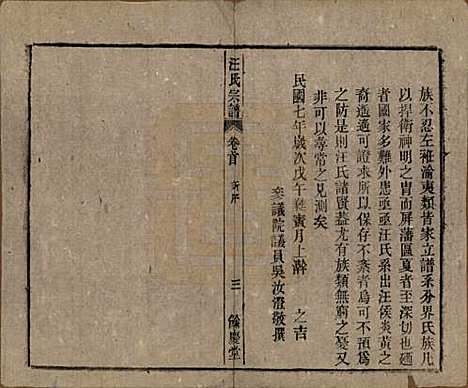 族不忍左袵淪夷類皆家立譜系分界氏族凡
以捍衛神明之冑而屏藩區夏者至深切也廼
者國家多難外患亟亟汪氏系出汪侯炎黃之
裔遥遥可證求所以保存不紊者烏可不預為
之防是則汪氏諸賢蓋尤有族類無窮之憂又
非可以尋常之見測矣
民國七年歲次戊午蕤賓月上澣 之吉
參議院議員吳汝澄敬撰
汪氏宗譜 卷首 新序 三 餘慶堂